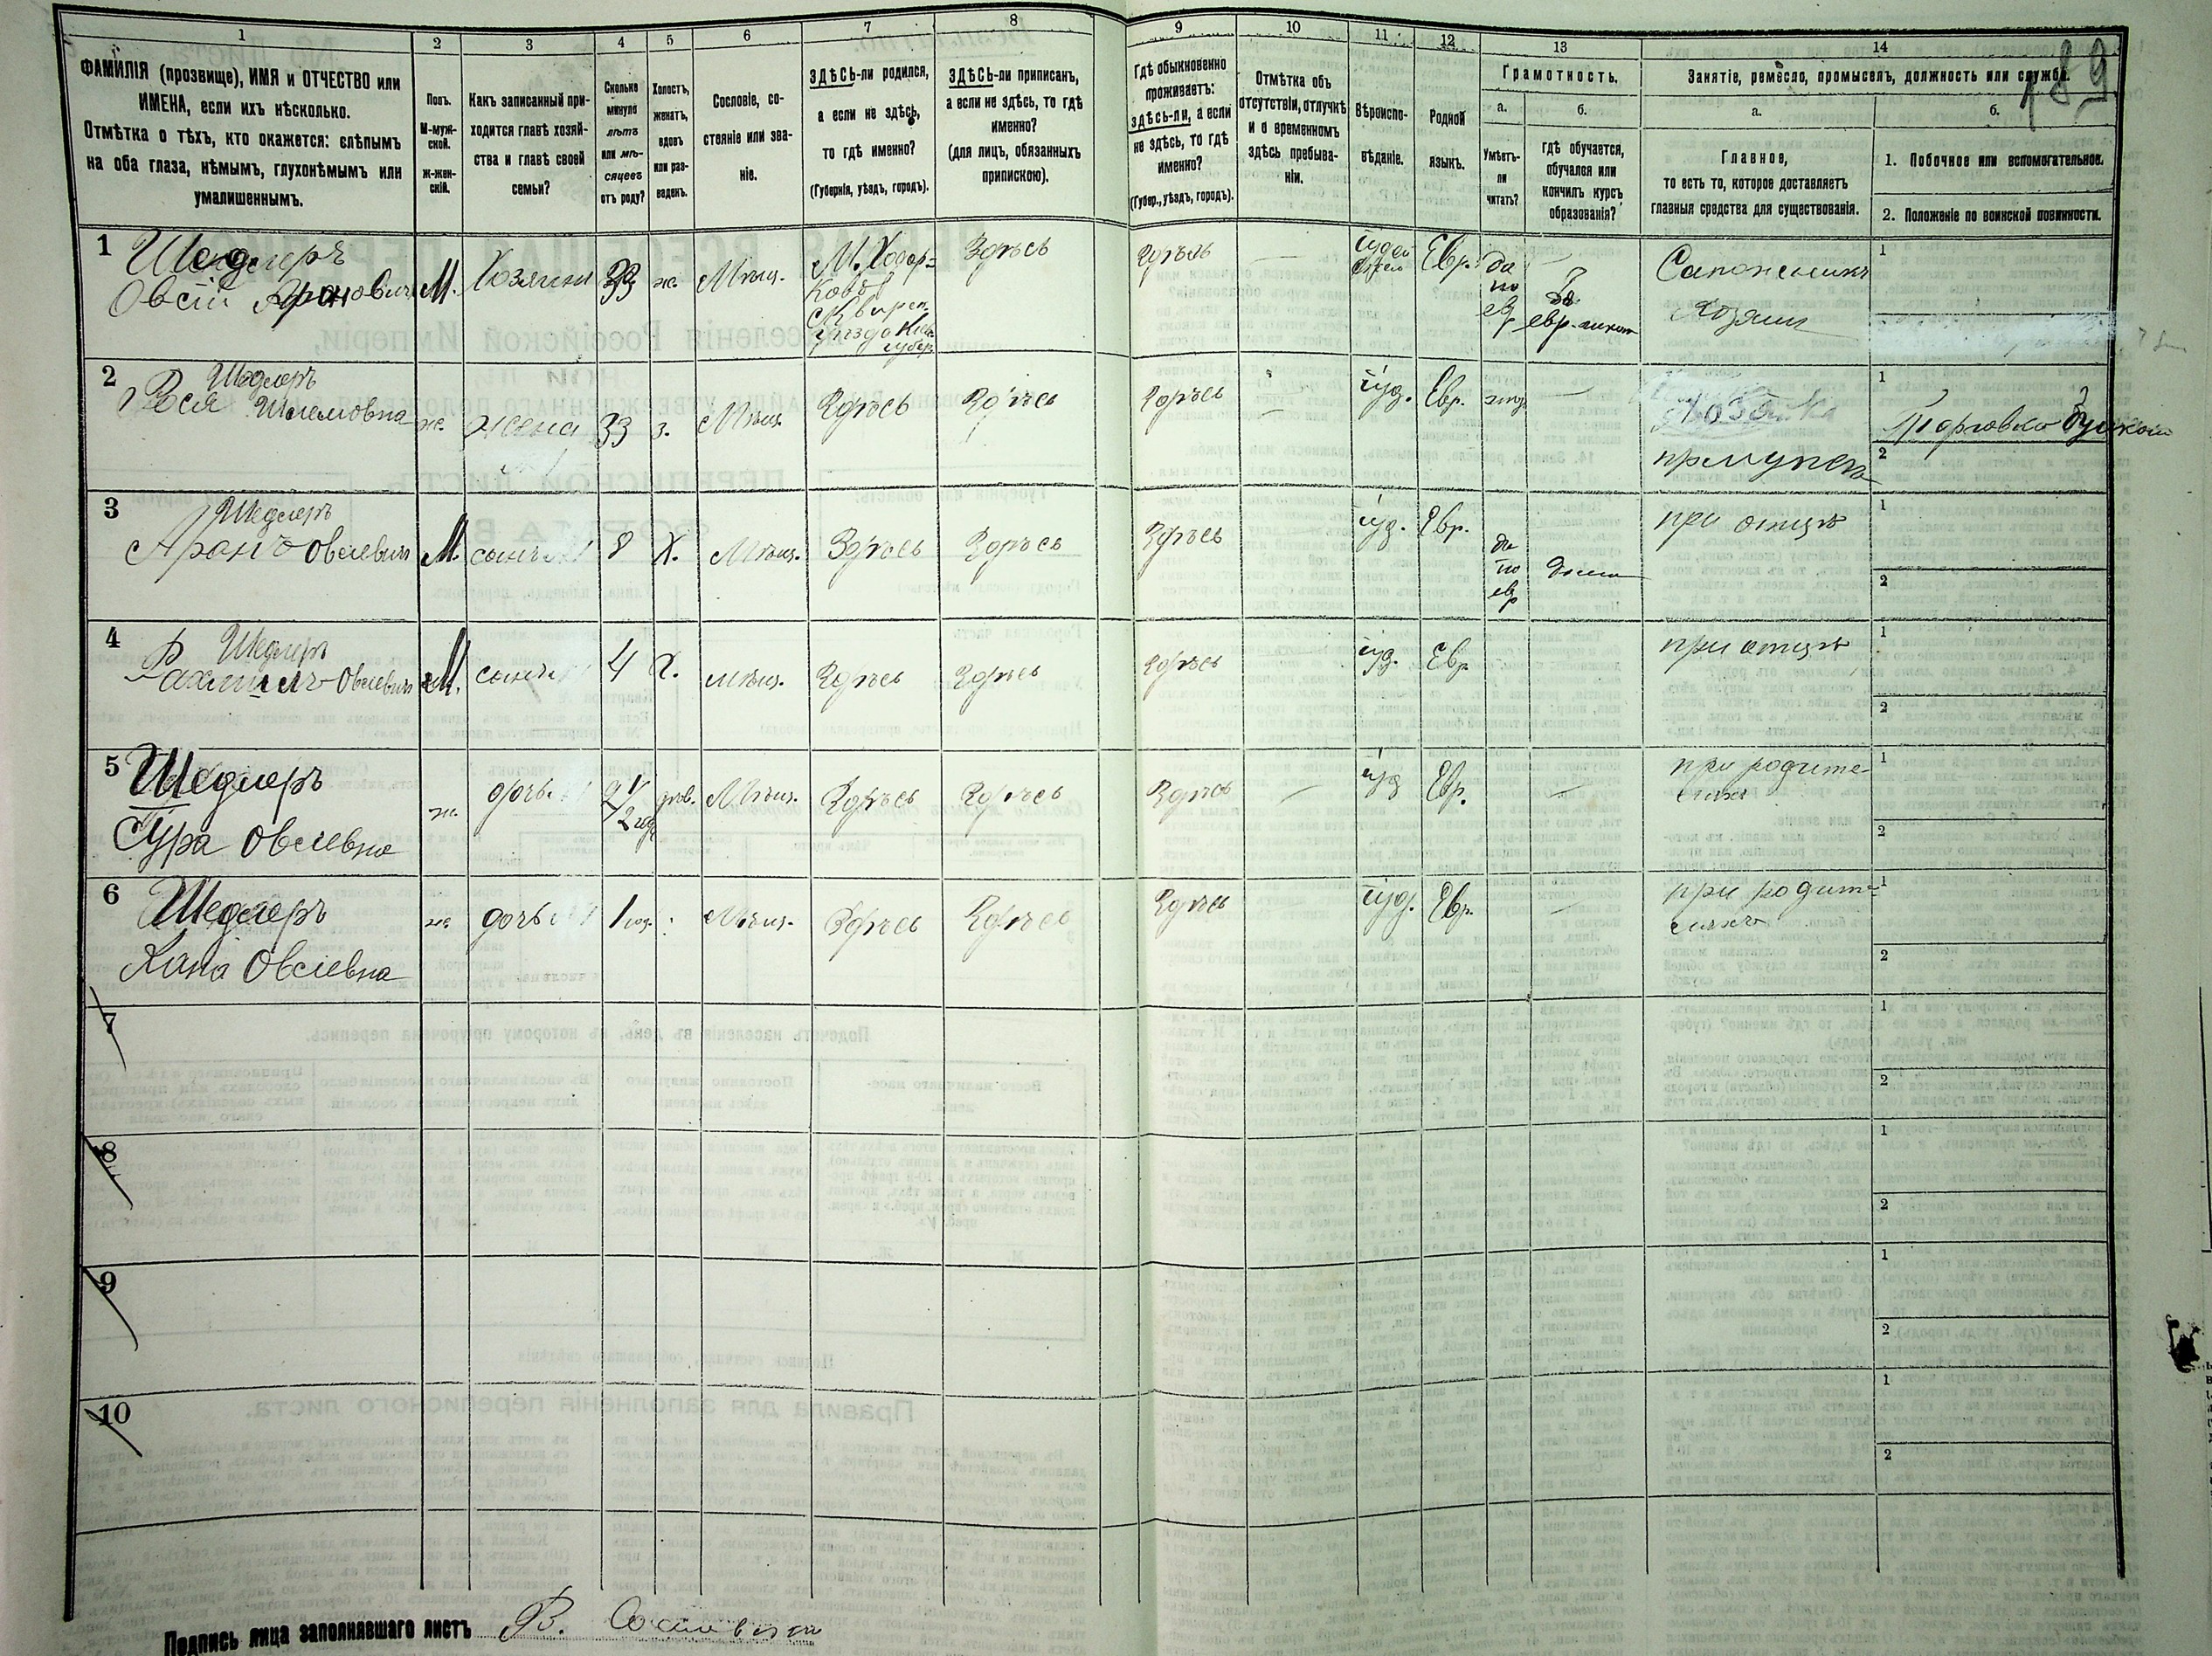 1 2 3 4 5 6 7 8 9 10 11 12 13 14
189
ФАМИЛІЯ (прозвище), ИМЯ и ОТЧЕСТВО или
ИМЕНА, если ихъ нѣсколько.
Отмѣтка о тѣхъ, кто окажется: слѣпымъ
на оба глаза, нѣмымъ, глухонѣмымъ или
умалишеннымъ.
Полъ.
М-муж-
ской.
Ж-жен-
скій.
Какъ записанный при-
ходится главѣ хозяй-
ства и главѣ своей
семьи?
Сколько
минуло
лѣтъ
или мѣ-
сяцевъ
отъ роду?
Холостъ,
женатъ,
вдовъ
или раз-
веденъ.
Сословіе, со-
стояніе или зва-
ніе.
ЗДѢСЬ-ли родился,
а если не здѣсь,
то гдѣ именно?
(Губернія, уѣздъ, городъ).
ЗДѢСЬ-ли приписанъ,
а если не здѣсь, то гдѣ
именно?
(для лицъ, обязанныхъ
припискою).
Гдѣ обыкновенно
проживаетъ:
здѣсь-ли, а если
не здѣсь, то гдѣ
именно?
(Губер., уѣздъ, городъ).
Отмѣтка объ
отсутствіи, отлучкѣ
и о временномъ
здѣсь пребыва-
ніи.
Вѣроиспо-
вѣданіе.
Родной
языкъ.
Грамотность.
а.
Умѣетъ-
ли
читать?
б.
гдѣ обучается,
обучался или
кончилъ курсъ
образованія?
Занятіе, ремесло, промыселъ, должность или служба.
а.
Главное,
то есть то, которое доставляетъ
главныя средства для существованія.
б.
1. Побочное или вспомогательное.
2. Положеніе по воинской повинности.
1 Шедлеръ
Овсій Ароновичъ М. Хозяинъ 33 ж. Мѣщ.
М. Ходор-
ковъ
Сквирск.
уѣзда Кіев.
губер.
Здѣсь Здѣсь — Евр. да
по
евр
—
Сапожникъ
хозяинъ
1
2 Шедлеръ
Рося Шлемовна ж. жена 33 з. Мѣщ. Здѣсь Здѣсь Здѣсь — іуд. Евр. —
Хозяйка
при мужѣ
1
Торговка
2
3 Шедлеръ
Аронъ Овсіевичъ М. сынъ 8 Х. Мѣщ. Здѣсь Здѣсь Здѣсь іуд. Евр. да
по
евр
дома при отцѣ
1
2
4 Шедлеръ
Рахмиль Овсіевичъ М. сынъ 4 Х. мѣщ. Здѣсь Здѣсь Здѣсь іуд. Евр. при отцѣ
1
2
5 Шедлеръ
Сура Овсіевна ж. дочь дѣв. Мѣщ. Здѣсь Здѣсь Здѣсь — іуд Евр. —
при родите-
ляхъ
1
2
6 Шедлеръ
Хана Овсіевна ж. дочь 1 год. Мѣщ. Здѣсь Здѣсь Здѣсь іуд. Евр. —
при родите-
ляхъ
1
2
7
1
2
8
1
2
9
1
2
10
1
2
Подпись лица заполнявшаго листъ